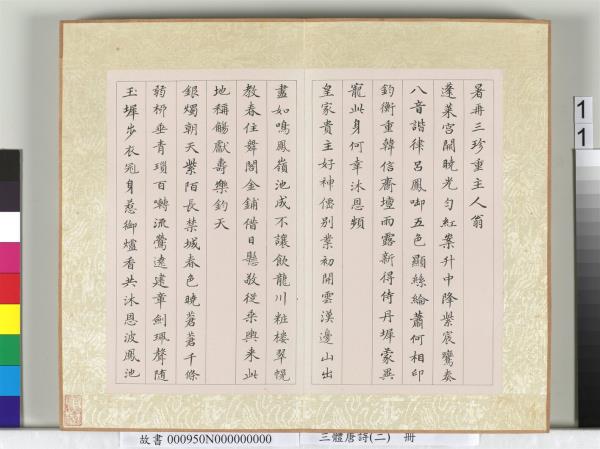 暑再三珍重主人翁
蓬萊宮闕曉光勻紅案升中降紫宸鸞奏
八音諧律呂鳳啣五色顯絲綸蕭何相印
鈞衡重韓信齋壇雨露新得侍丹墀蒙異
寵此身何幸沐恩頻
皇家貴主好神僊別業初開雲漢邊山出
盡如鳴鳳嶺池成不讓飲龍川粧樓翠幌
教春住舞閣金鋪借日懸敬從乘輿來此
地稱觴獻壽樂鈞天
銀燭朝天紫陌長禁城春色曉蒼蒼千條
弱柳垂青瑣百囀流鶯遶建章劍珮聲隨
玉墀步衣冠身惹御爐香共沐恩波鳳池
故書 000950N000000000
三體唐詩(二) 冊
11